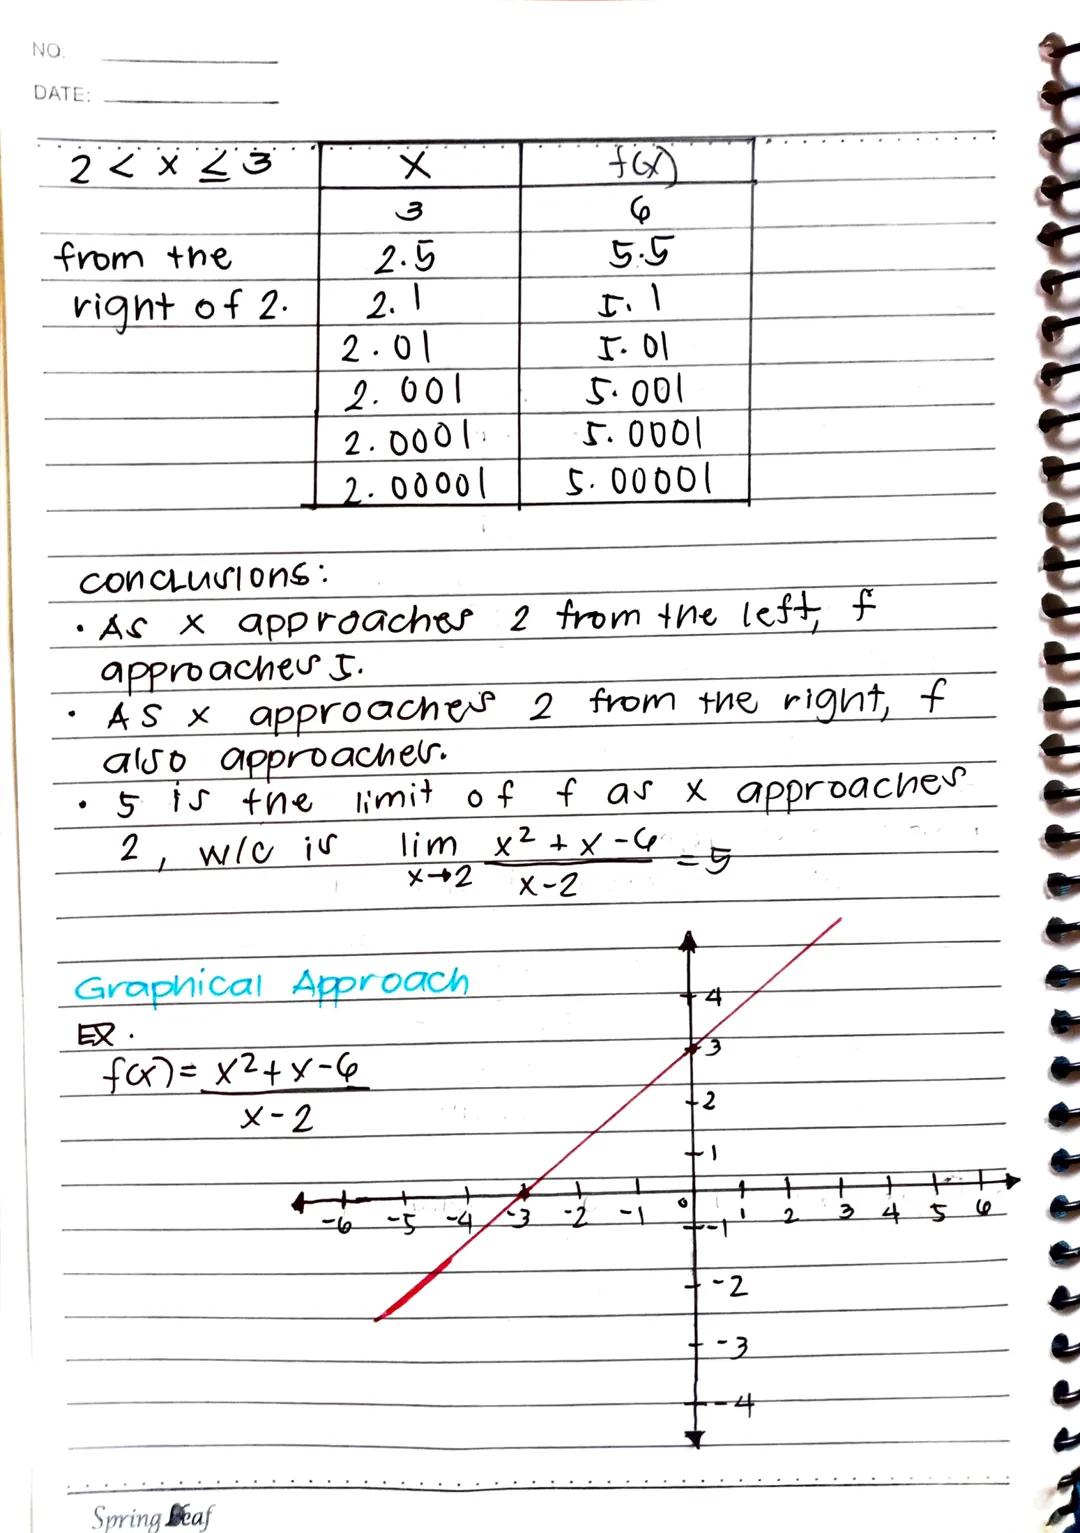 NO.
DATE:
2 < x ≤ 3 x f(x)
3 6
from the 2.5 5.5
right of 2. 2.1 5.1
2.01 5.01
2.001 5.001
2.0001 5.0001
2.00001 5.00001
conclusions:
• As x approaches 2 from the left, f
approaches 5.
• As x approaches 2 from the right, f
also approaches.
• 5 is the limit of f as x approaches
2, w/c is lim x→2 (x² + x - 6)/(x - 2) = 5
Graphical Approach
EX.
f(x) = (x² + x - 6)/(x - 2)
4
3
2
1
-6 -5 -4 -3 -2 -1 0 1 2 3 4 5 6
-1
-2
-3
-4
Spring Leaf